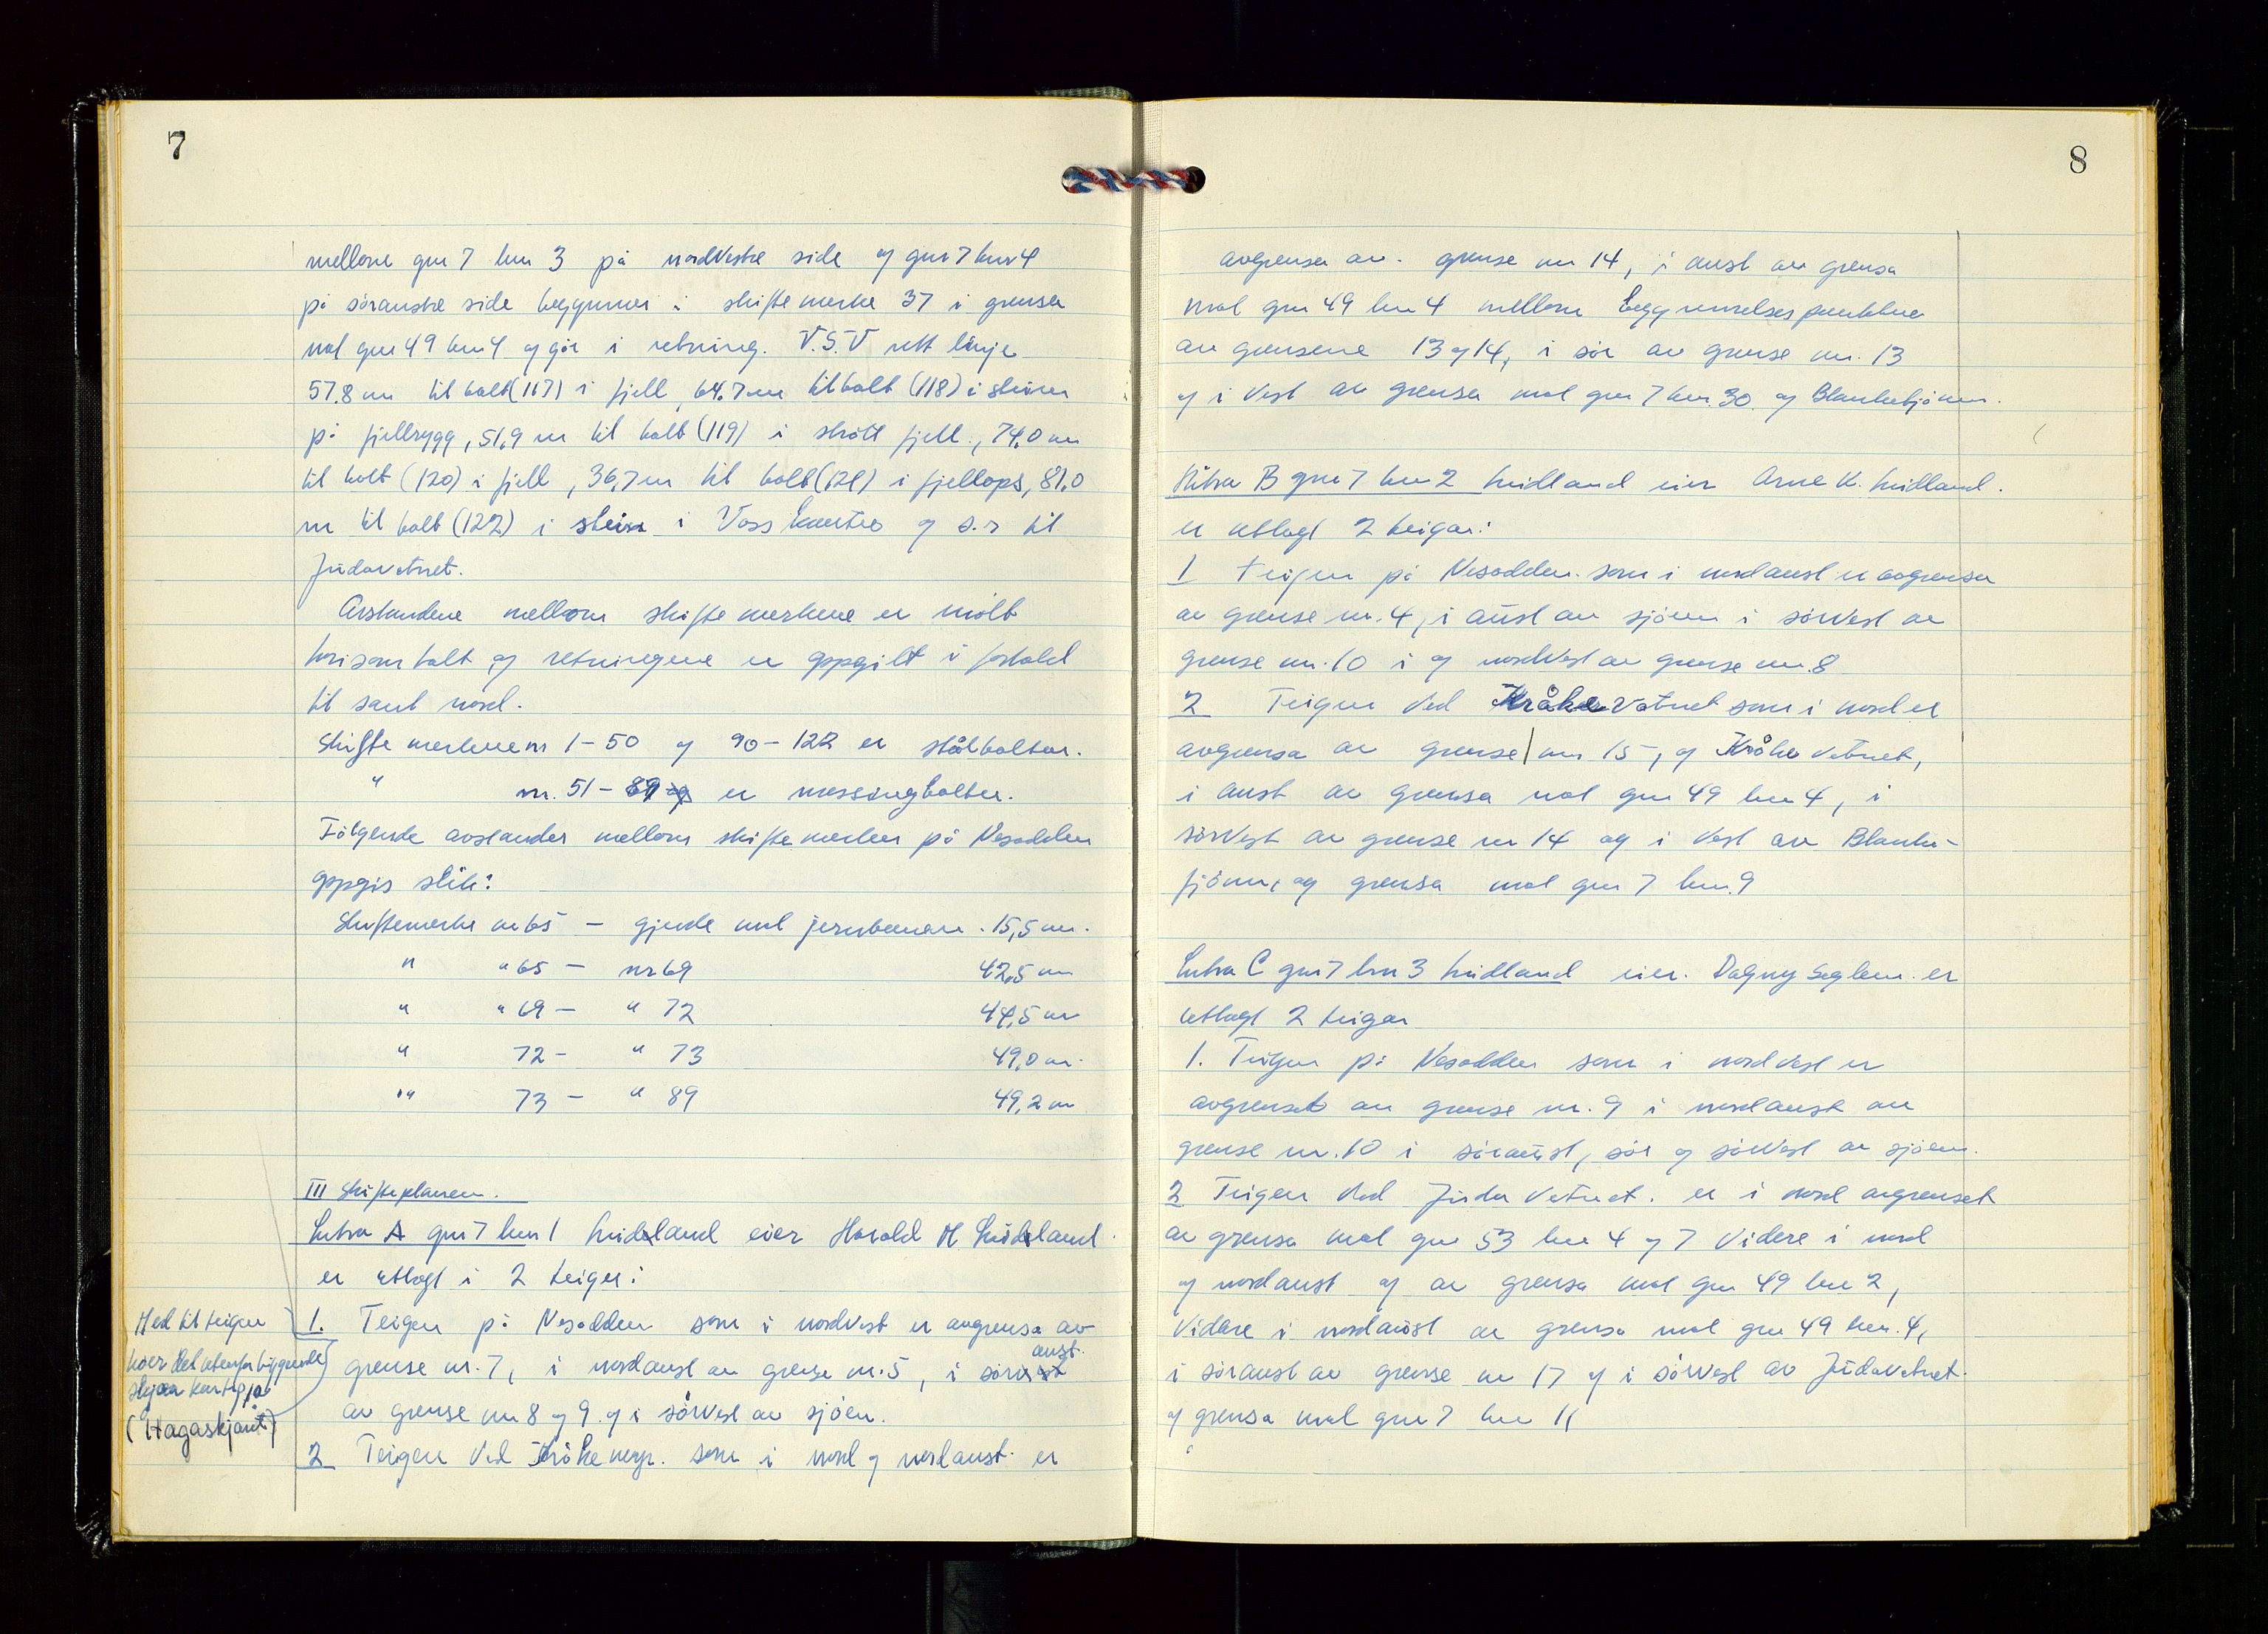 7
mellom gnr 7 bnr 3 på nordvestre side og gnr 7 bnr 4
på søraustre side begynner i skiftemerke 37 i grensa
mot gnr 49 bnr 4 og går i retning. V.S.V rett linje
57.8 m til bolt (117) i fjell, 64.7 m til bolt (118) i stein
på fjellrygg, 51,9 m til bolt (119) i skrått fjell., 74,0 m
til bolt (120) i fjell, 36,7 m til bolt (121) i fjellops, 81,0
m til bolt (122) i stein i Vasskanten og s.r til
Judavatnet.
Avstandene mellom skiftemerkene er målt
horisontalt og retningene er oppgitt i forhold
til sant nord.
Skiftemerkene nr 1-50 og 90-122 er stålbolter.
" nr. 51-89 er messingbolter.
Følgende avstander mellom skiftemerker på Nesodden
oppgis slik:
Skiftemerke nr 65 - gjerde mot jernbanen. 15,5 m.
" " 65 - nr 69 42,5 m
" " 69 - " 72 44,5 m
" 72 - " 73 49,0 m.
" 73 - " 89 49,2 m
III Skifteplanen.
Lutra A gnr 7 bnr 1 Lindland eier Harald M Lindland.
er utlagt i 2 teiger:
1. Teigen på Nesodden som i nordvest er avgrensa av
grense nr. 7, i nordaust av grense nr. 5, i søraust.
av grense nr 8 og 9. og i sørvest av sjøen.
2 Teigen ved Kråke som i nord og nordaust er
Med til teigen
hører det utenfor liggende
skjær
(Hagaskjæret)
8
avgrensa av. grense nr 14, i aust av grensa
mot gnr 49 bnr 4 mellom begynnelsespunktene
av grensene 13 og 14, i sør av grense nr. 13
og i vest av grensa mot gnr 7 bnr. 30 og Blanketjønn.
Lutra B gnr 7 bnr 2 Lindland eier Arne K. Lindland.
er utlagt 2 teigar:
1 Teigen på Nesodden. som i nordaust er avgrensa
av grense nr. 4, i aust av sjøen i sørvest av
grense nr. 10 i og nordvest av grense nr. 8
2 Teigen ved Kråkevatnet som i nord er
avgrensa av grense nr 15, og Kråkevatnet,
i aust av grensa mot gnr 49 bnr 4, i
sørvest av grense nr 14 og i vest av Blanke-
tjønn, og grensa mot gnr 7 bnr. 9
Lutra C gnr 7 bnr 3 Lindland eier. Dagny Seglem er
utlagt 2 teigar
1. Teigen på Nesodden som i nordvest er
avgrenset av grense nr. 9 i nordaust av
grense nr. 10 i søraust, sør og sørvest av sjøen.
2 Teigen ved Juda Vatnet. er i nord avgrenset
av grensa mot gnr 53 bnr 4 og 7 Videre i nord
og nordaust og av grensa mot gnr 49 bnr 2,
Videre i nordaust av grensa mot gnr 49 bnr. 4,
i søraust av grense nr 17 og i sørvest av Judavatnet.
og grensa mot gnr 7 bnr 11